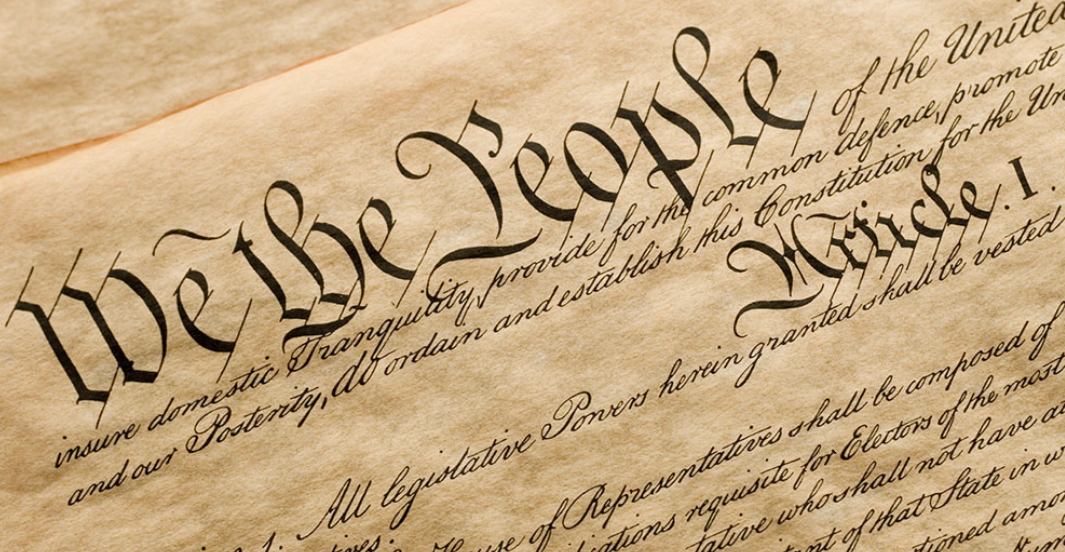 We the People of the United
insure domestic Tranquility, provide for the common defence, promote
and our Posterity, do ordain and establish this Constitution for the Un
Article. I.
1. All legislative Powers herein granted shall be vested
tives.
House of Representatives shall be composed of
ications requisite for Electors of the most
tative who shall not have at
nt of that State in w
tioned amon